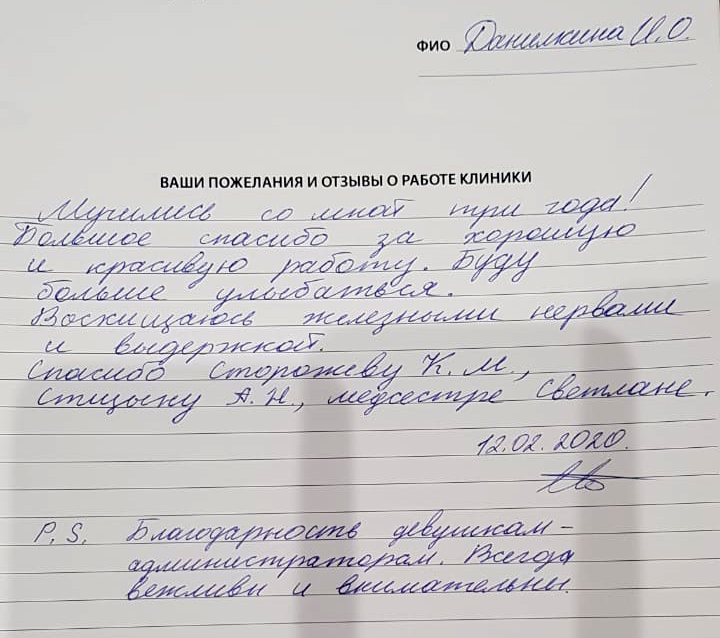 ФИО Данилкина И.О.
ВАШИ ПОЖЕЛАНИЯ И ОТЗЫВЫ О РАБОТЕ КЛИНИКИ
Мучились со мной три года!
Большое спасибо за хорошую
и красивую работу. Буду
больше улыбаться.
Восхищаюсь железными нервами
и выдержкой.
Спасибо Сторожеву К.М.,
Стицыну А.Н., медсестре Светлане.
12.02.2020.
P.S. Благодарность девушкам-
администраторам. Всегда
вежливы и внимательны.